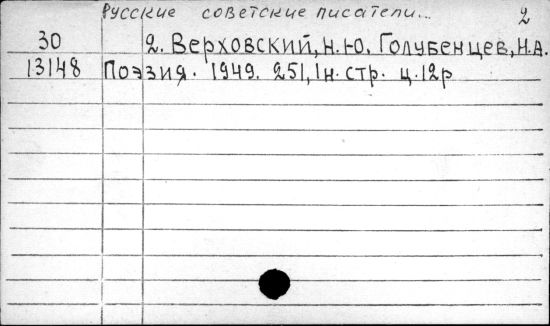 Русские советские писатели... 2
30 2. Верховский, Н.Ю. Голубенцев, Н.А.
13148 Поэзия. 1949. 251, 1н. стр. ц. 12р